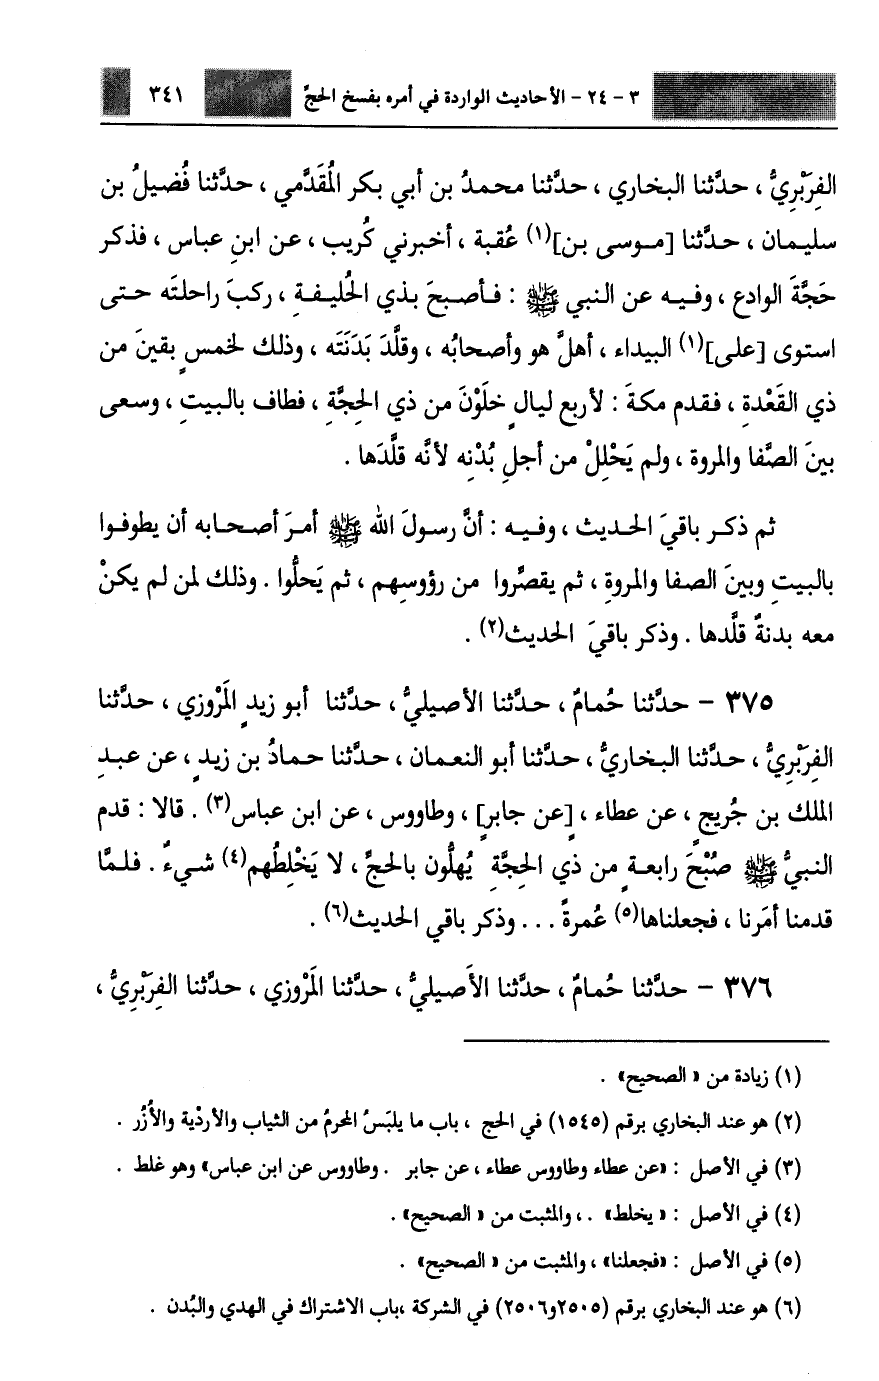 ٣ - ٢٤ - الأحاديث الواردة في أمره بفسخ الحجِّ ٣٤١
الفِرَبْرِيُّ ، حدَّثنا البخاري ، حدَّثنا محمدُ بن أبي بكر المُقَدَّمي ، حدَّثنا فُضيلُ بن
سليمان ، حدَّثنا [موسى بن](١) عُقبة ، أخبرني كُريب ، عن ابنِ عباس ، فذكر
حَجَّةَ الوادع ، وفيه عن النبي ﷺ : فأصبحَ بذي الحُليفةِ ، ركبَ راحلتَه حتى
استوى [على](١) البيداء ، أهلَّ هو وأصحابُه ، وقلَّدَ بَدَنَتَه ، وذلك لخمسٍ بقينَ من
ذي القَعْدةِ ، فقدم مكةَ : لأربع ليالٍ خلَوْنَ من ذي الحِجَّةِ ، فطاف بالبيتِ ، وسعى
بينَ الصَّفا والمروة ، ولم يَحْلِلْ من أجلِ بُدْنِه لأنَّه قلَّدَها .
ثم ذكر باقيَ الحديث ، وفيه : أنَّ رسولَ الله ﷺ أمرَ أصحابه أن يطوفوا
بالبيتِ وبينَ الصفا والمروةِ ، ثم يقصِّروا من رؤوسِهم ، ثم يَحلُّوا . وذلك لمن لم يكنْ
معه بدنةٌ قلَّدها . وذكر باقيَ الحديث(٢) .
٣٧٥ - حدَّثنا حُمامٌ ، حدَّثنا الأصيليُّ ، حدَّثنا أبو زيدٍ المَرْوزي ، حدَّثنا
الفِرَبْرِيُّ ، حدَّثنا البخاريُّ ، حدَّثنا أبو النعمان ، حدَّثنا حمادُ بن زيدٍ ، عن عبدِ
الملك بن جُريجٍ ، عن عطاء ، [عن جابرٍ] ، وطاووس ، عن ابن عباس(٣) . قالا : قدم
النبيُّ ﷺ صُبْحَ رابعةٍ من ذي الحِجَّةِ يُهلُّون بالحجِّ ، لا يَخْلِطُهم(٤) شيءٌ . فلمَّا
قدمنا أمَرنا ، فجعلناها(٥) عُمرةً . . . وذكر باقي الحديث(٦) .
٣٧٦ - حدَّثنا حُمامٌ ، حدَّثنا الأَصيليُّ ، حدَّثنا المَرْوزي ، حدَّثنا الفِرَبْرِيُّ ،
(١) زيادة من « الصحيح» .
(٢) هو عند البخاري برقم (١٥٤٥) في الحج ، باب ما يلبَسُ المحرمُ من الثياب والأردْية والأُزُر .
(٣) في الأصل : «عن عطاء وطاووس عطاء ، عن جابر . وطاووس عن ابن عباس» وهو غلط .
(٤) في الأصل : « يخلط» . ، والمثبت من « الصحيح» .
(٥) في الأصل : «فجعلنا» ، والمثبت من « الصحيح» .
(٦) هو عند البخاري برقم (٢٥٠٥و٢٥٠٦) في الشركة ،باب الاشتراك في الهدي والبُدن .